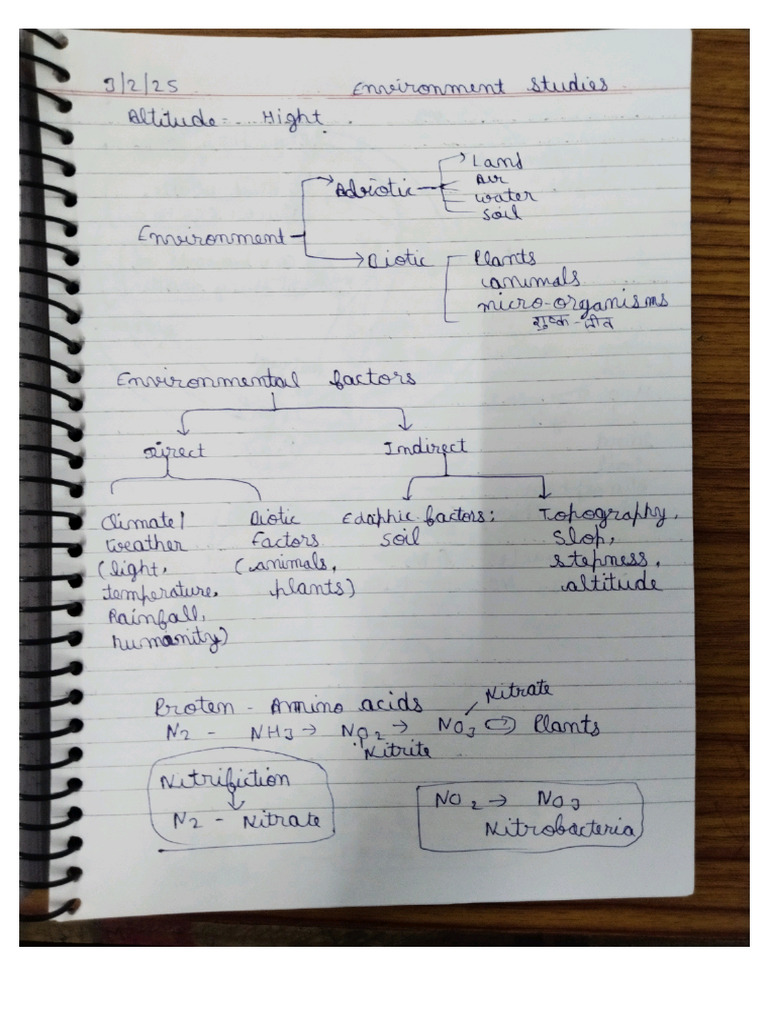 3/2/25 Environment Studies
Altitude = ... Hight .
Environment
Abiotic
Land
Air
water
soil
Biotic
Plants
animals
micro-organisms
शुष्क-जीव
Environmental factors
Direct Indirect
Climate/ Biotic Edaphic factors: Topography,
Weather Factors soil Slop,
(light, (animals, stepness,
temperature, plants) altitude
Rainfall,
humanity)
Proten - Amino acids
Nitrate
N2 - NH3 → NO2 → NO3 ⇨ Plants
Nitrite
Nitrifiction
↓
N2 - Nitrate
NO2 → NO3
Nitrobacteria